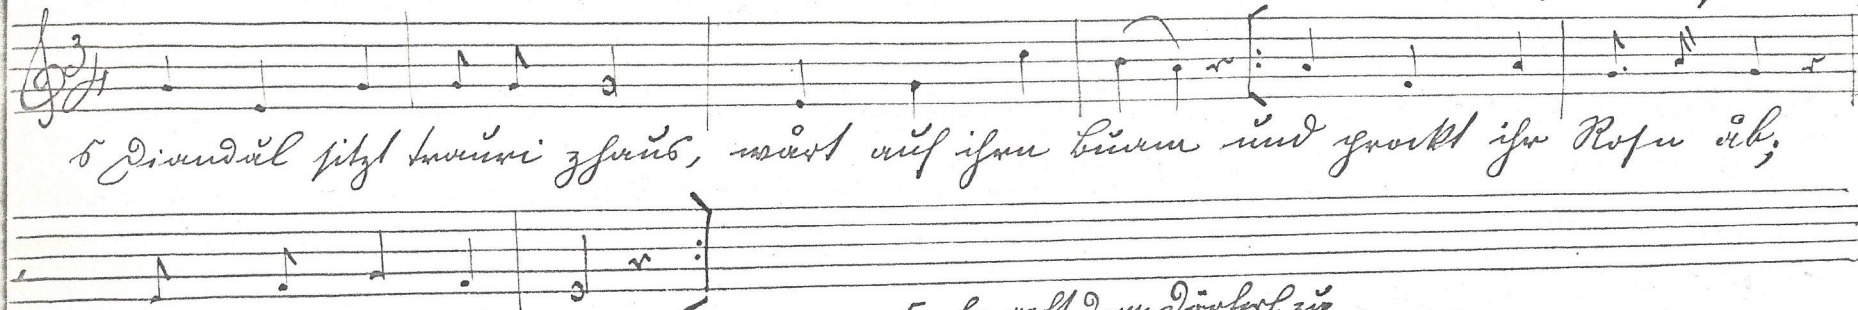 3/4
s Diandål sitzt trauri zhaus, wårt auf ihrn Buam und prockt ihr Rosn åb;